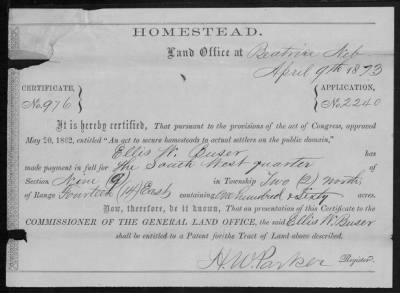 HOMESTEAD.
Land Office at Beatrice Neb
April 9th 1873
CERTIFICATE, No 976
APPLICATION, No 2240
It is hereby certified, That pursuant to the provisions of the act of Congress, approved
May 20, 1862, entitled "An act to secure homesteads to actual settlers on the public domain,"
Ellis W. Buser has
made payment in full for the South West quarter of
Section Nine (9) in Township Two (2) north,
of Range Fourteen (14) East, containing One hundred & Sixty acres.
Now, therefore, be it known, That on presentation of this Certificate to the
COMMISSIONER OF THE GENERAL LAND OFFICE, the said Ellis W. Buser
shall be entitled to a Patent for the Tract of Land above described.
H. W. Parker Register.